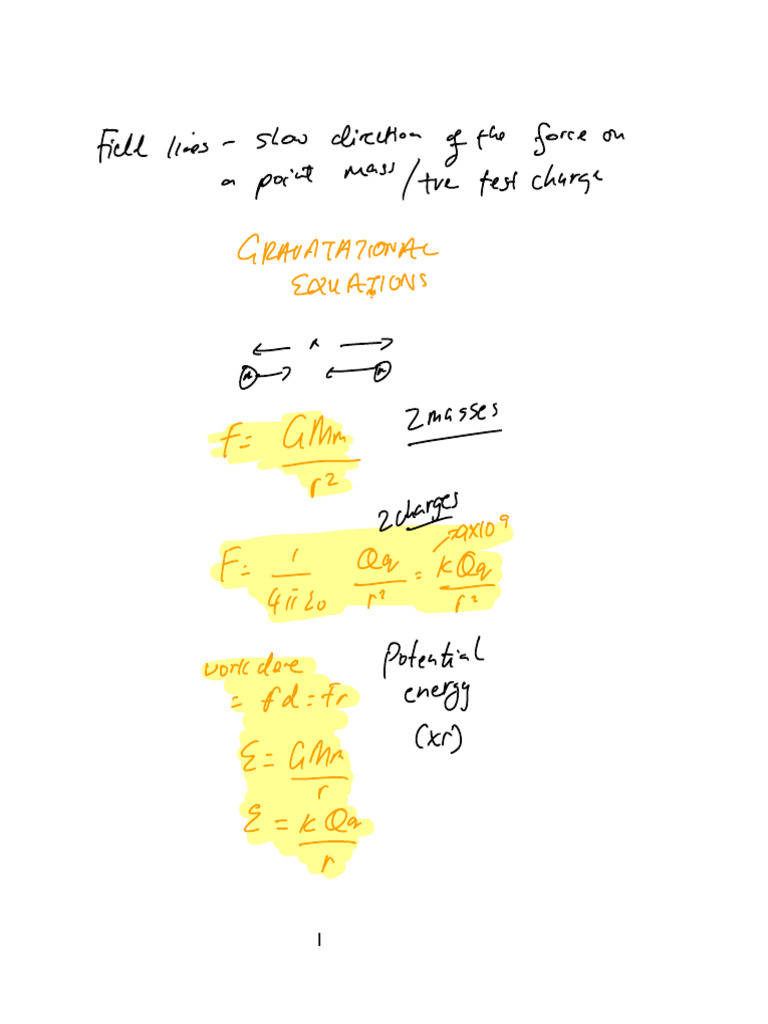 Field lines - show direction of the force on
a point mass/+ve test charge
GRAVATATIONAL
EQUATIONS
← r →
m → ← m
F = GMm/r²
2 masses
2 charges
F = 1/4πε₀ Qq/r² = kQq/r² → 9x10⁹
work done
= fd = Fr
Potential
energy
(xr)
E = GMm/r
E = kQq/r
1